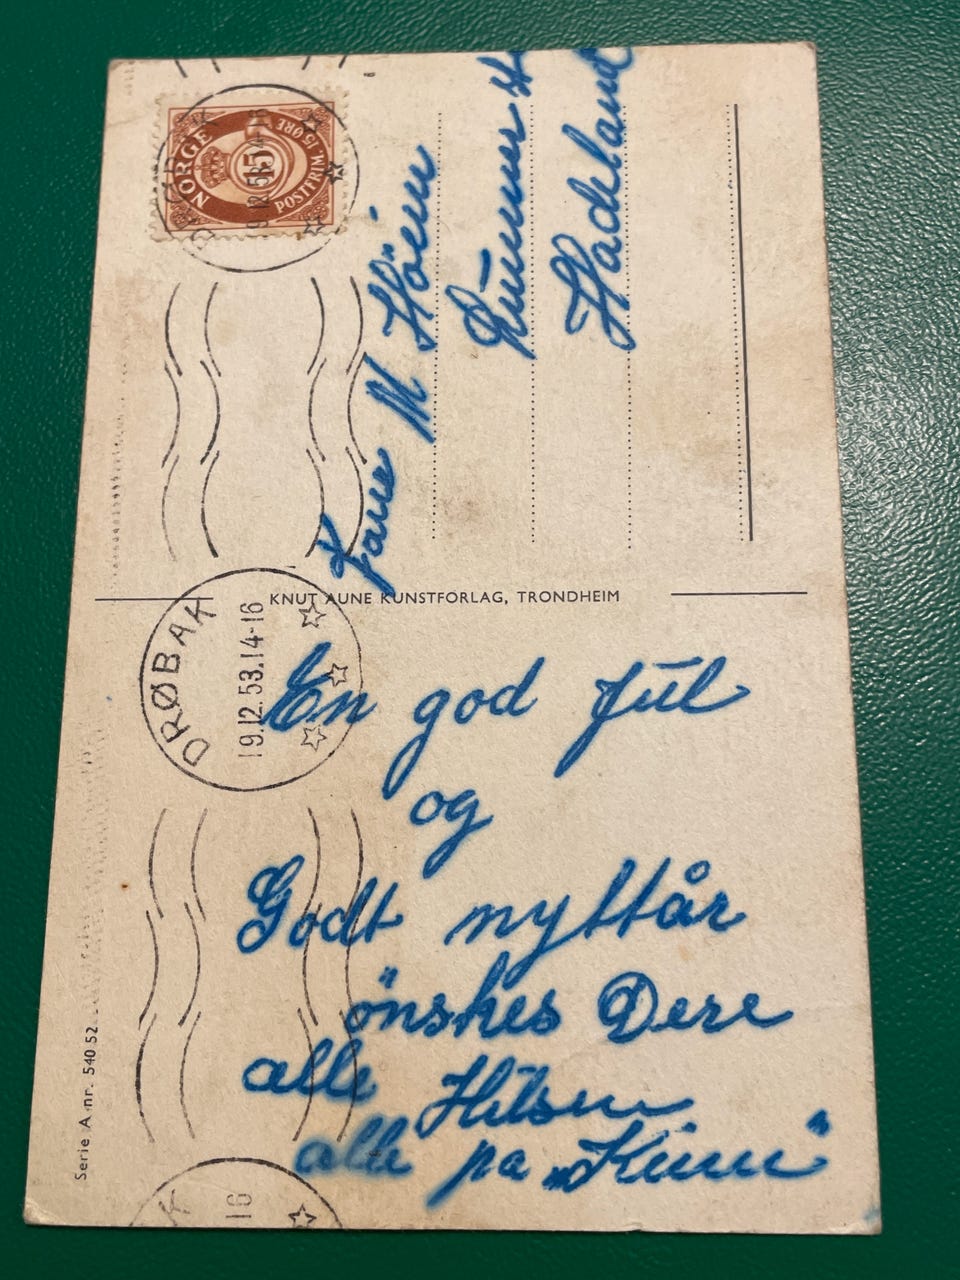 NORGE
POSTFRIM. 15 ØRE
15
M Höien
Hadeland
KNUT AUNE KUNSTFORLAG, TRONDHEIM
DRØBAK
19.12.53.14-16
En god jul
og
Godt nyttår
önskes Dere
alle Hilsen
alle på
Serie A nr. 540 52
16